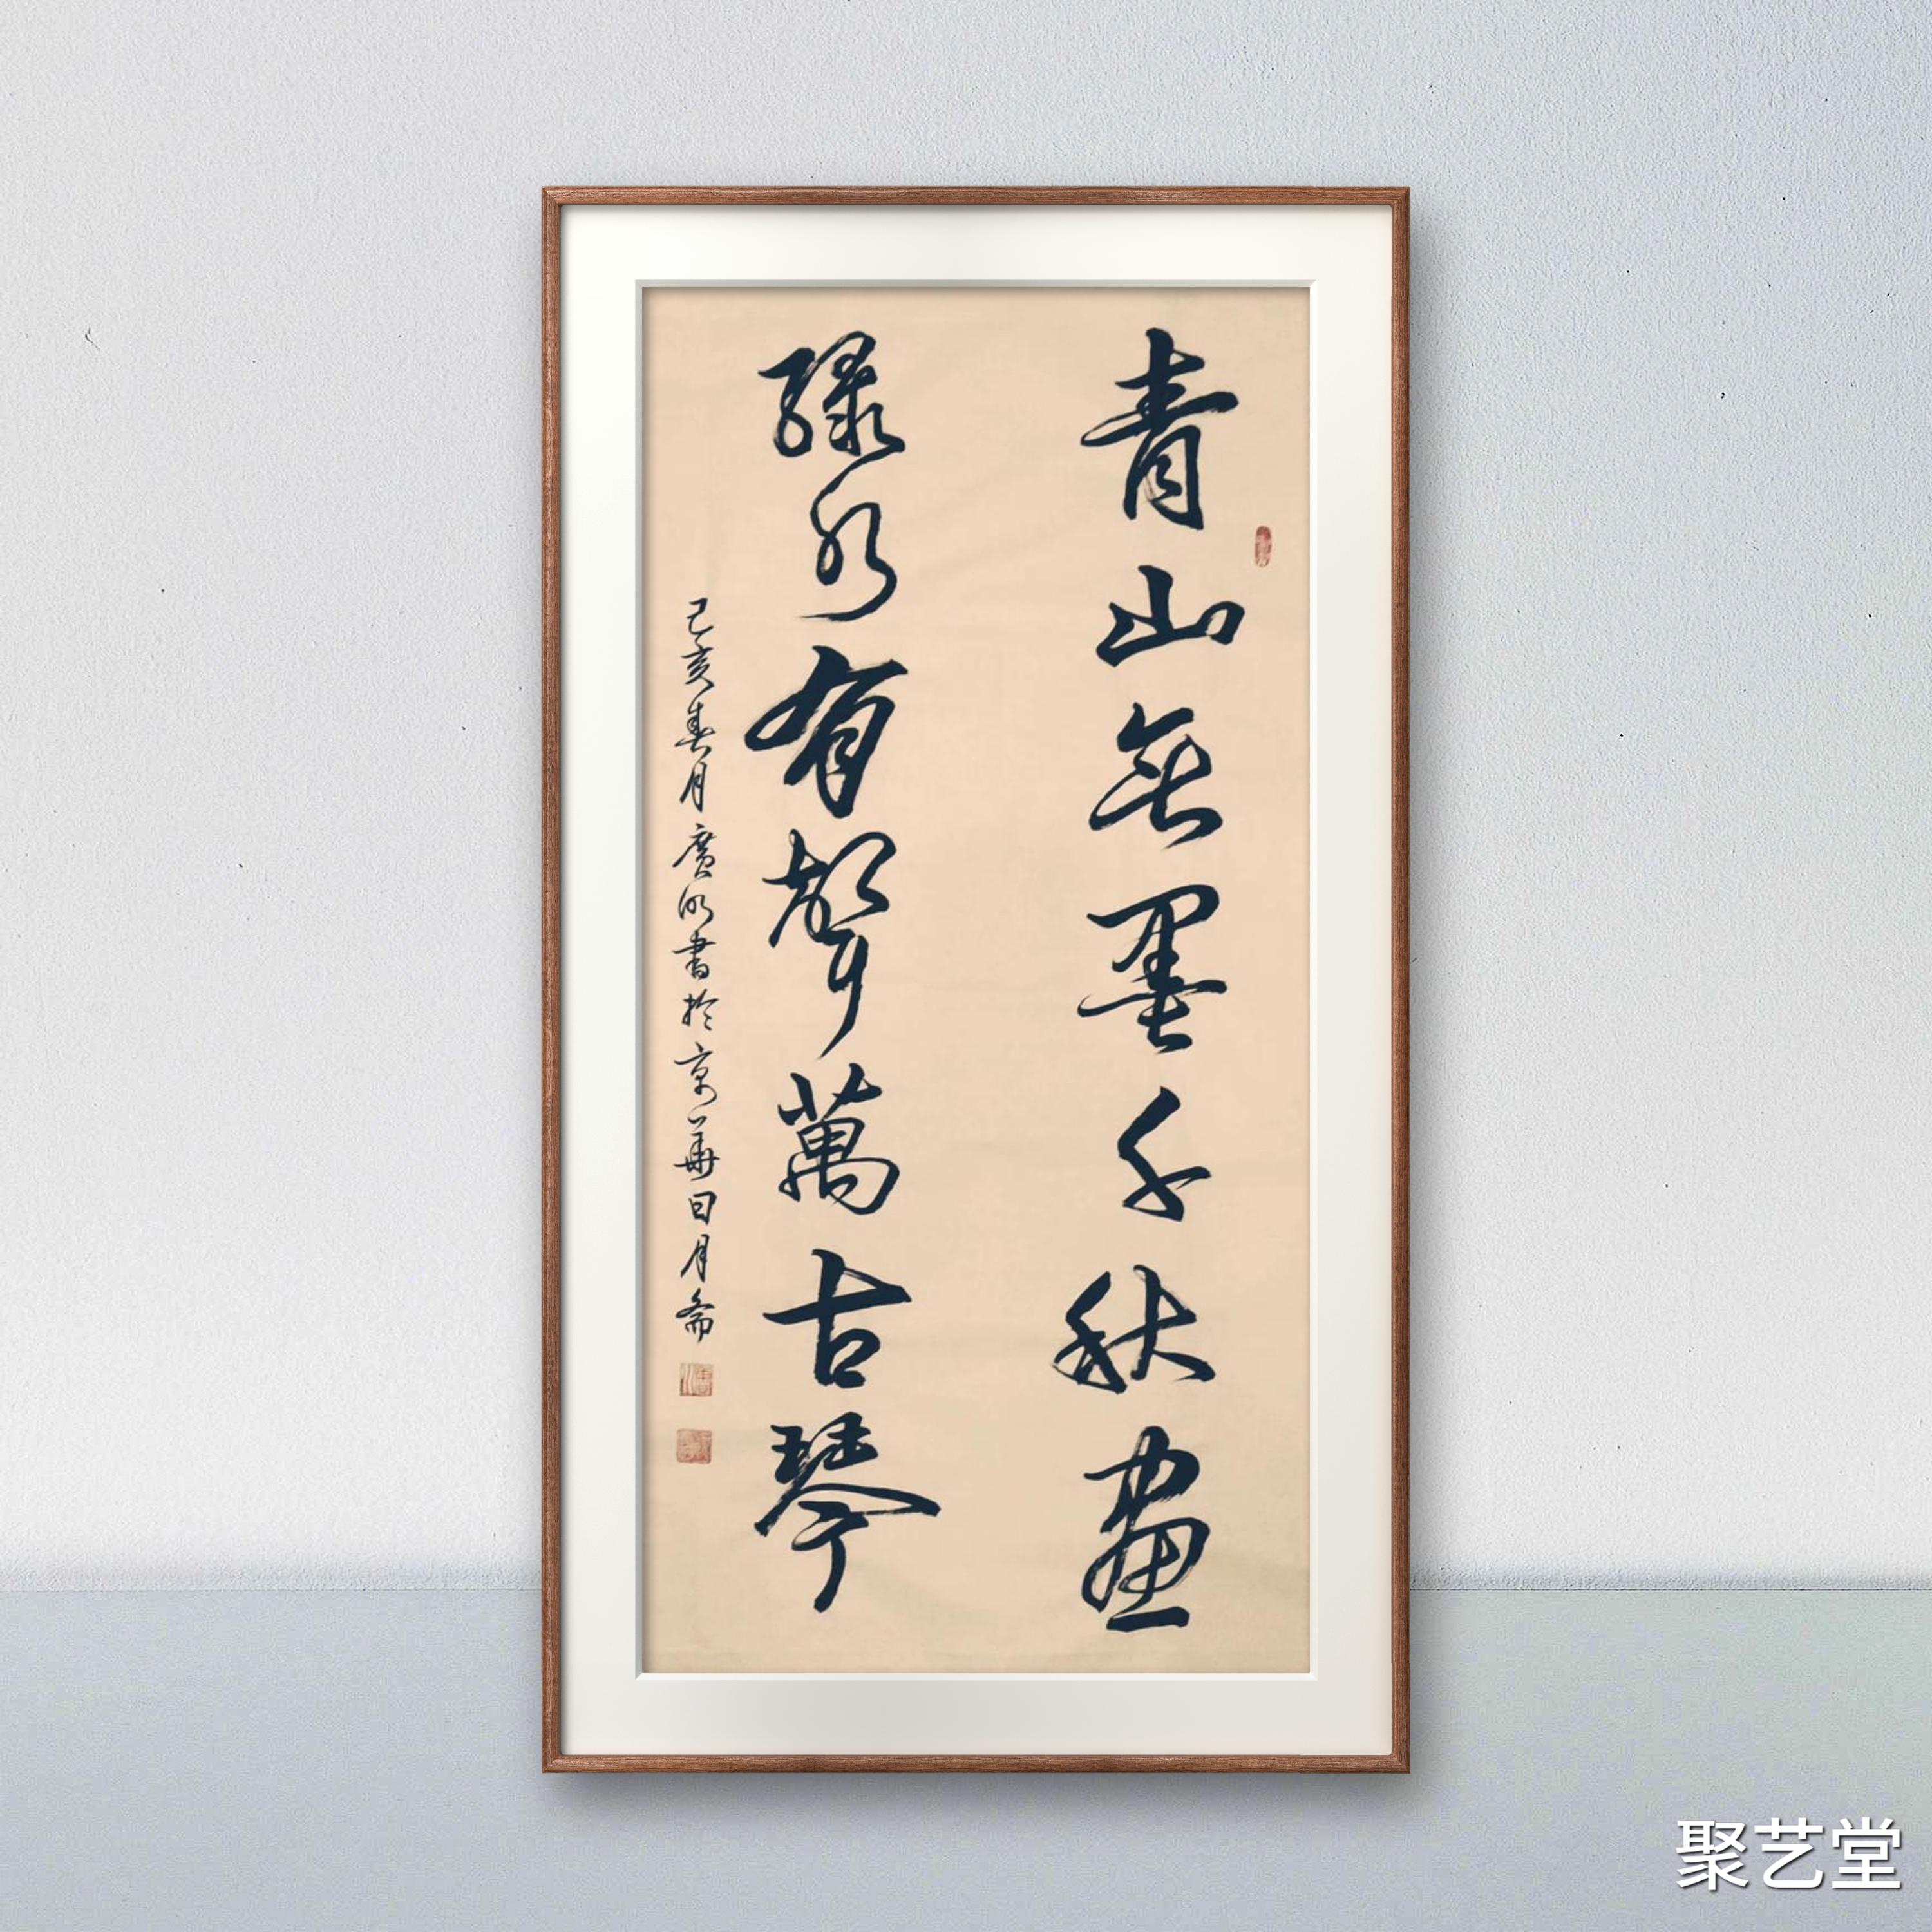 青山無墨千秋畫
緑水有聲萬古琴
己亥春月廣明書於京華日月齋
聚艺堂